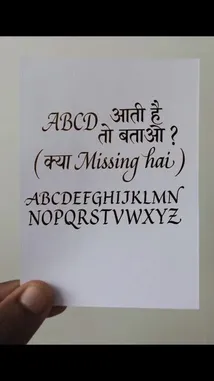 ABCD आती है
तो बताओ ?
( क्या Missing hai )
ABCDEFGHIJKLMN
NOPQRSTVWXYZ